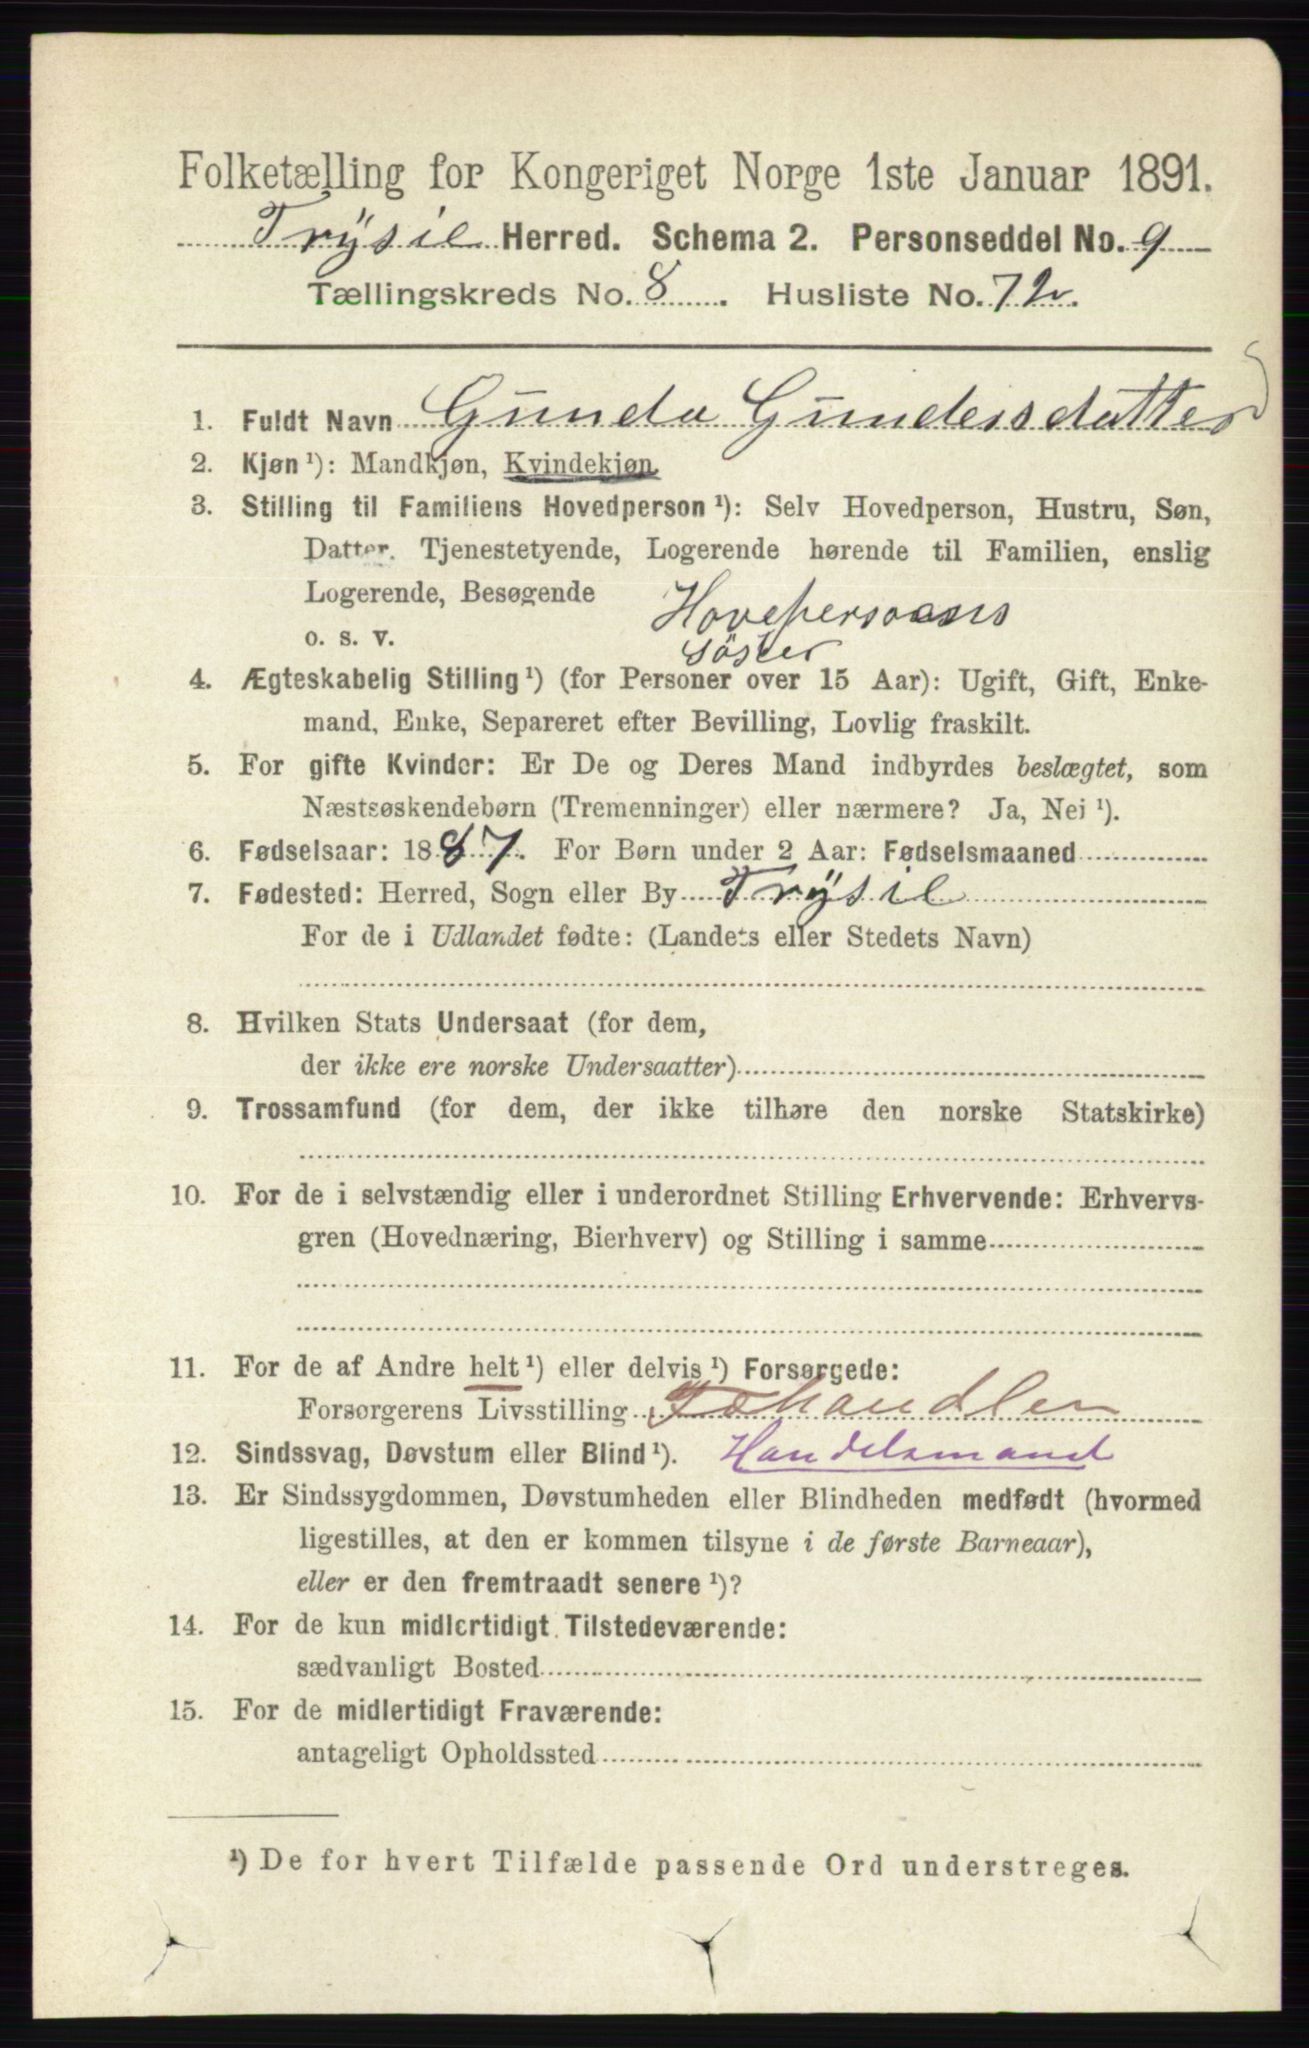 Folketælling for Kongeriget Norge 1ste Januar 1891.
Trÿsil Herred. Schema 2. Personseddel No. 9
Tællingskreds No. 8. Husliste No. 72.
1. Fuldt Navn Gunda Gundersdatter
2. Kjøn ¹): Mandkjøn, Kvindekjøn
3. Stilling til Familiens Hovedperson ¹): Selv Hovedperson, Hustru, Søn,
Datter, Tjenestetyende, Logerende hørende til Familien, enslig
Logerende, Besøgende
o. s. v.
Hovepersoens
Söster
4. Ægteskabelig Stilling ¹) (for Personer over 15 Aar): Ugift, Gift, Enke-
mand, Enke, Separeret efter Bevilling, Lovlig fraskilt.
5. For gifte Kvinder: Er De og Deres Mand indbyrdes beslægtet, som
Næstsøskendebørn (Tremenninger) eller nærmere? Ja, Nei ¹).
6. Fødselsaar: 1887. For Børn under 2 Aar: Fødselsmaaned
7. Fødested: Herred, Sogn eller By Trÿsil
For de i Udlandet fødte: (Landets eller Stedets Navn)
8. Hvilken Stats Undersaat (for dem,
der ikke ere norske Undersaatter)
9. Trossamfund (for dem, der ikke tilhøre den norske Statskirke)
10. For de i selvstændig eller i underordnet Stilling Erhvervende: Erhvervs-
gren (Hovednæring, Bierhverv) og Stilling i samme
11. For de af Andre helt ¹) eller delvis ¹) Forsørgede:
Forsørgerens Livsstilling Fehandler
12. Sindssvag, Døvstum eller Blind ¹). Handelsmand
13. Er Sindssygdommen, Døvstumheden eller Blindheden medfødt (hvormed
ligestilles, at den er kommen tilsyne i de første Barneaar),
eller er den fremtraadt senere ¹)?
14. For de kun midlertidigt Tilstedeværende:
sædvanligt Bosted
15. For de midlertidigt Fraværende:
antageligt Opholdssted
¹) De for hvert Tilfælde passende Ord understreges.